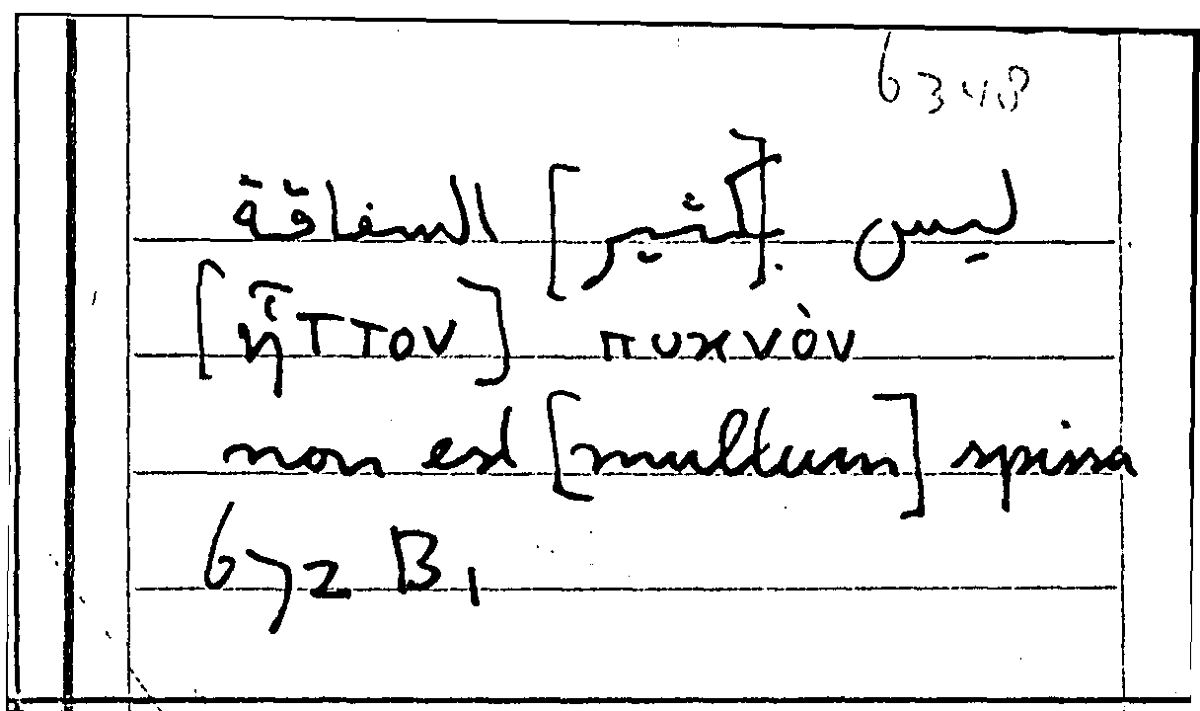 6348
ليس ب[كثير] السفاقة
[ἧττον] πυκνὸν
non est [multum] spissa
672 B1